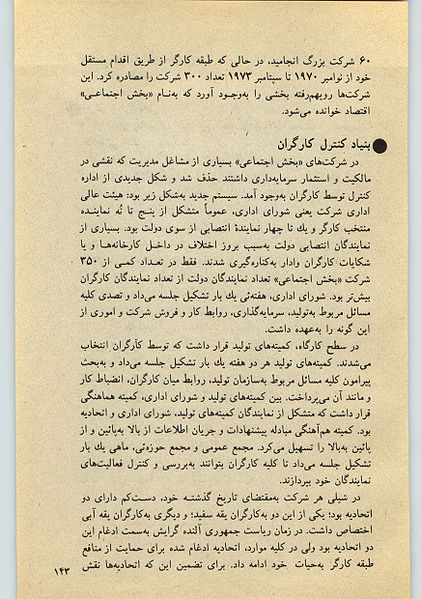 ۶۰ شرکت بزرگ انجامید، در حالی که طبقه کارگر از طریق اقدام مستقل
خود از نوامبر ۱۹۷۰ تا سپتامبر ۱۹۷۳ تعداد ۳۰۰ شرکت را مصادره کرد. این
شرکت‌ها رویهم‌رفته بخشی را به‌وجود آورد که به‌نام «بخش اجتماعی»
اقتصاد خوانده می‌شود.
بنیاد کنترل کارگران
در شرکت‌های «بخش اجتماعی» بسیاری از مشاغل مدیریت که نقشی در
مالکیت و استثمار سرمایه‌داری داشتند حذف شد و شکل جدیدی از اداره
کنترل توسط کارگران به‌وجود آمد. سیستم جدید به‌شکل زیر بود: هیئت عالی
اداری شرکت یعنی شورای اداری، عموماً متشکل از پنـج تا نُه نماینـده
منتخب کارگر و یك تا چهار نمایندهٔ انتصابی از سوی دولت بود. بسیاری از
نمایندگان انتصابی دولت به‌سبب بروز اختلاف در داخـل کارخانه‌هـا و یا
شکایات کارگران وادار به‌کناره‌گیری شدند. فقط در تعـداد کمـی از ۳۵۰
شرکت «بخش اجتماعی» تعداد نمایندگان دولت از تعداد نمایندگان کارگران
بیش‌تر بود. شورای اداری، هفته‌ئی یك بار تشکیل جلسه می‌داد و تصدی کلیه
مسائل مربوط به‌تولید، سرمایه‌گذاری، روابط کار و فروش شرکت و اموری از
این گونه را به‌عهده داشت.
در سطح کارگاه، کمیته‌های تولید قرار داشت که توسط کارگران انتخاب
می‌شدند. کمیته‌های تولید هر دو هفته یك بار تشکیل جلسه می‌داد و به‌بحث
پیرامون کلیه مسائل مربوط به‌سازمان تولید، روابط میان کارگران، انضباط کار
و مانند آن می‌پرداخت. بین کمیته‌های تولید و شورای اداری، کمیته هماهنگی
قرار داشت که متشکل از نمایندگان کمیته‌های تولید، شورای اداری و اتحادیه
بود. کمیته هم‌آهنگی مبادله پیشنهادات و جریان اطلاعات از بالا به‌پائین و از
پائین به‌بالا را تسهیل می‌کرد. مجمع عمومی و مجمع حوزه‌ئی، ماهی یك بار
تشکیل جلسه می‌داد تا کلیه کارگران بتوانند به‌بررسی و کنترل فعالیت‌های
نمایندگان خود بپردازند.
در شیلی هر شرکت به‌مقتضای تاریخ گذشتـه خود، دست‌کم دارای دو
اتحادیه بود؛ یکی از این دو به‌کارگران یقه سفید؛ و دیگری به‌کارگران یقه آبی
اختصاص داشت. در زمان ریاست جمهوری آلنده گرایش به‌سمت ادغام این
دو اتحادیه بود ولی در کلیه موارد، اتحادیه ادغام شده برای حمایت از منافع
طبقه کارگر به‌حیات خود ادامه داد. برای تضمین این که اتحادیه‌ها نقش
۱۴۳